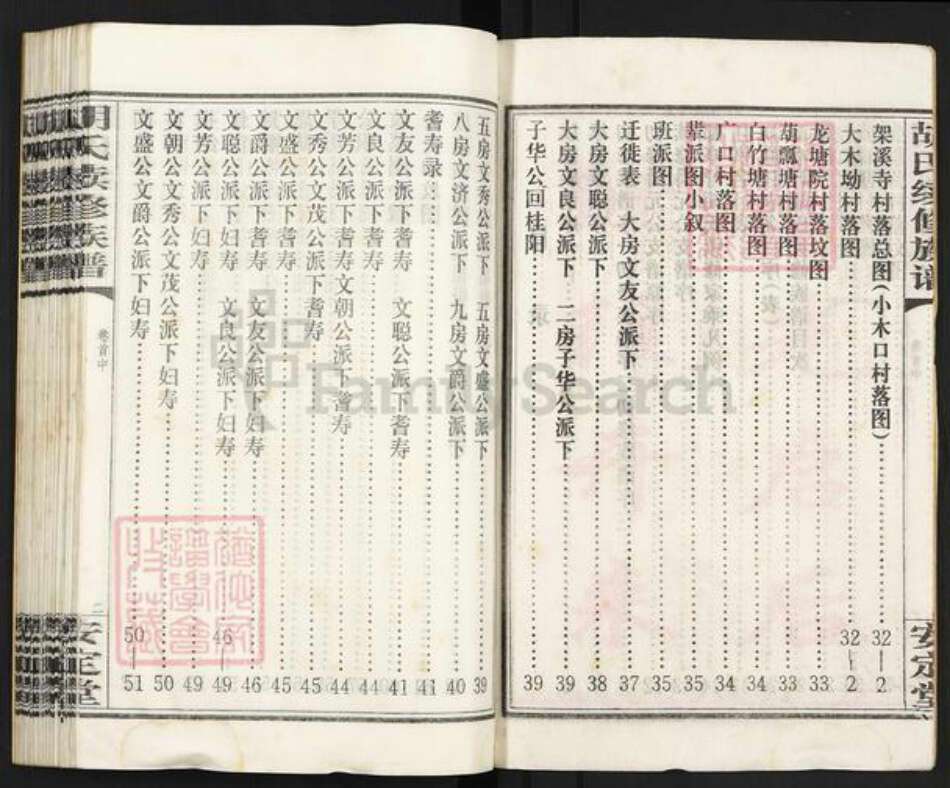 胡氏续修族谱
安定堂
架溪寺村落总图(小木口村落图)……32—2
大木坳村落图……32—2
龙塘院村落坟图……33
葫瓢塘村落图……33
白竹塘村落图……34
广口村落图……34
辈派图小叙……35
班派图……35
迁徙表 大房文友公派下……37
大房文聪公派下……38
大房文良公派下 二房子华公派下……39
子华公回桂阳……39
五房文秀公派下 五房文盛公派下……39
八房文济公派下 九房文爵公派下……40
耆寿录……41
文友公派下耆寿 文聪公派下耆寿……41
文良公派下耆寿……44
文芳公派下耆寿文朝公派下耆寿……44
文秀公文茂公派下耆寿……45
文盛公派下耆寿……45
文爵公派下耆寿 文友公派下妇寿……46
文聪公派下耆寿 文良公派下妇寿……46—49
文芳公派下妇寿……49
文朝公文秀公文茂公派下妇寿……50
文盛公文爵公派下妇寿……50—51
卷首中
二
安定堂
谱学会
收藏
FamilySearch